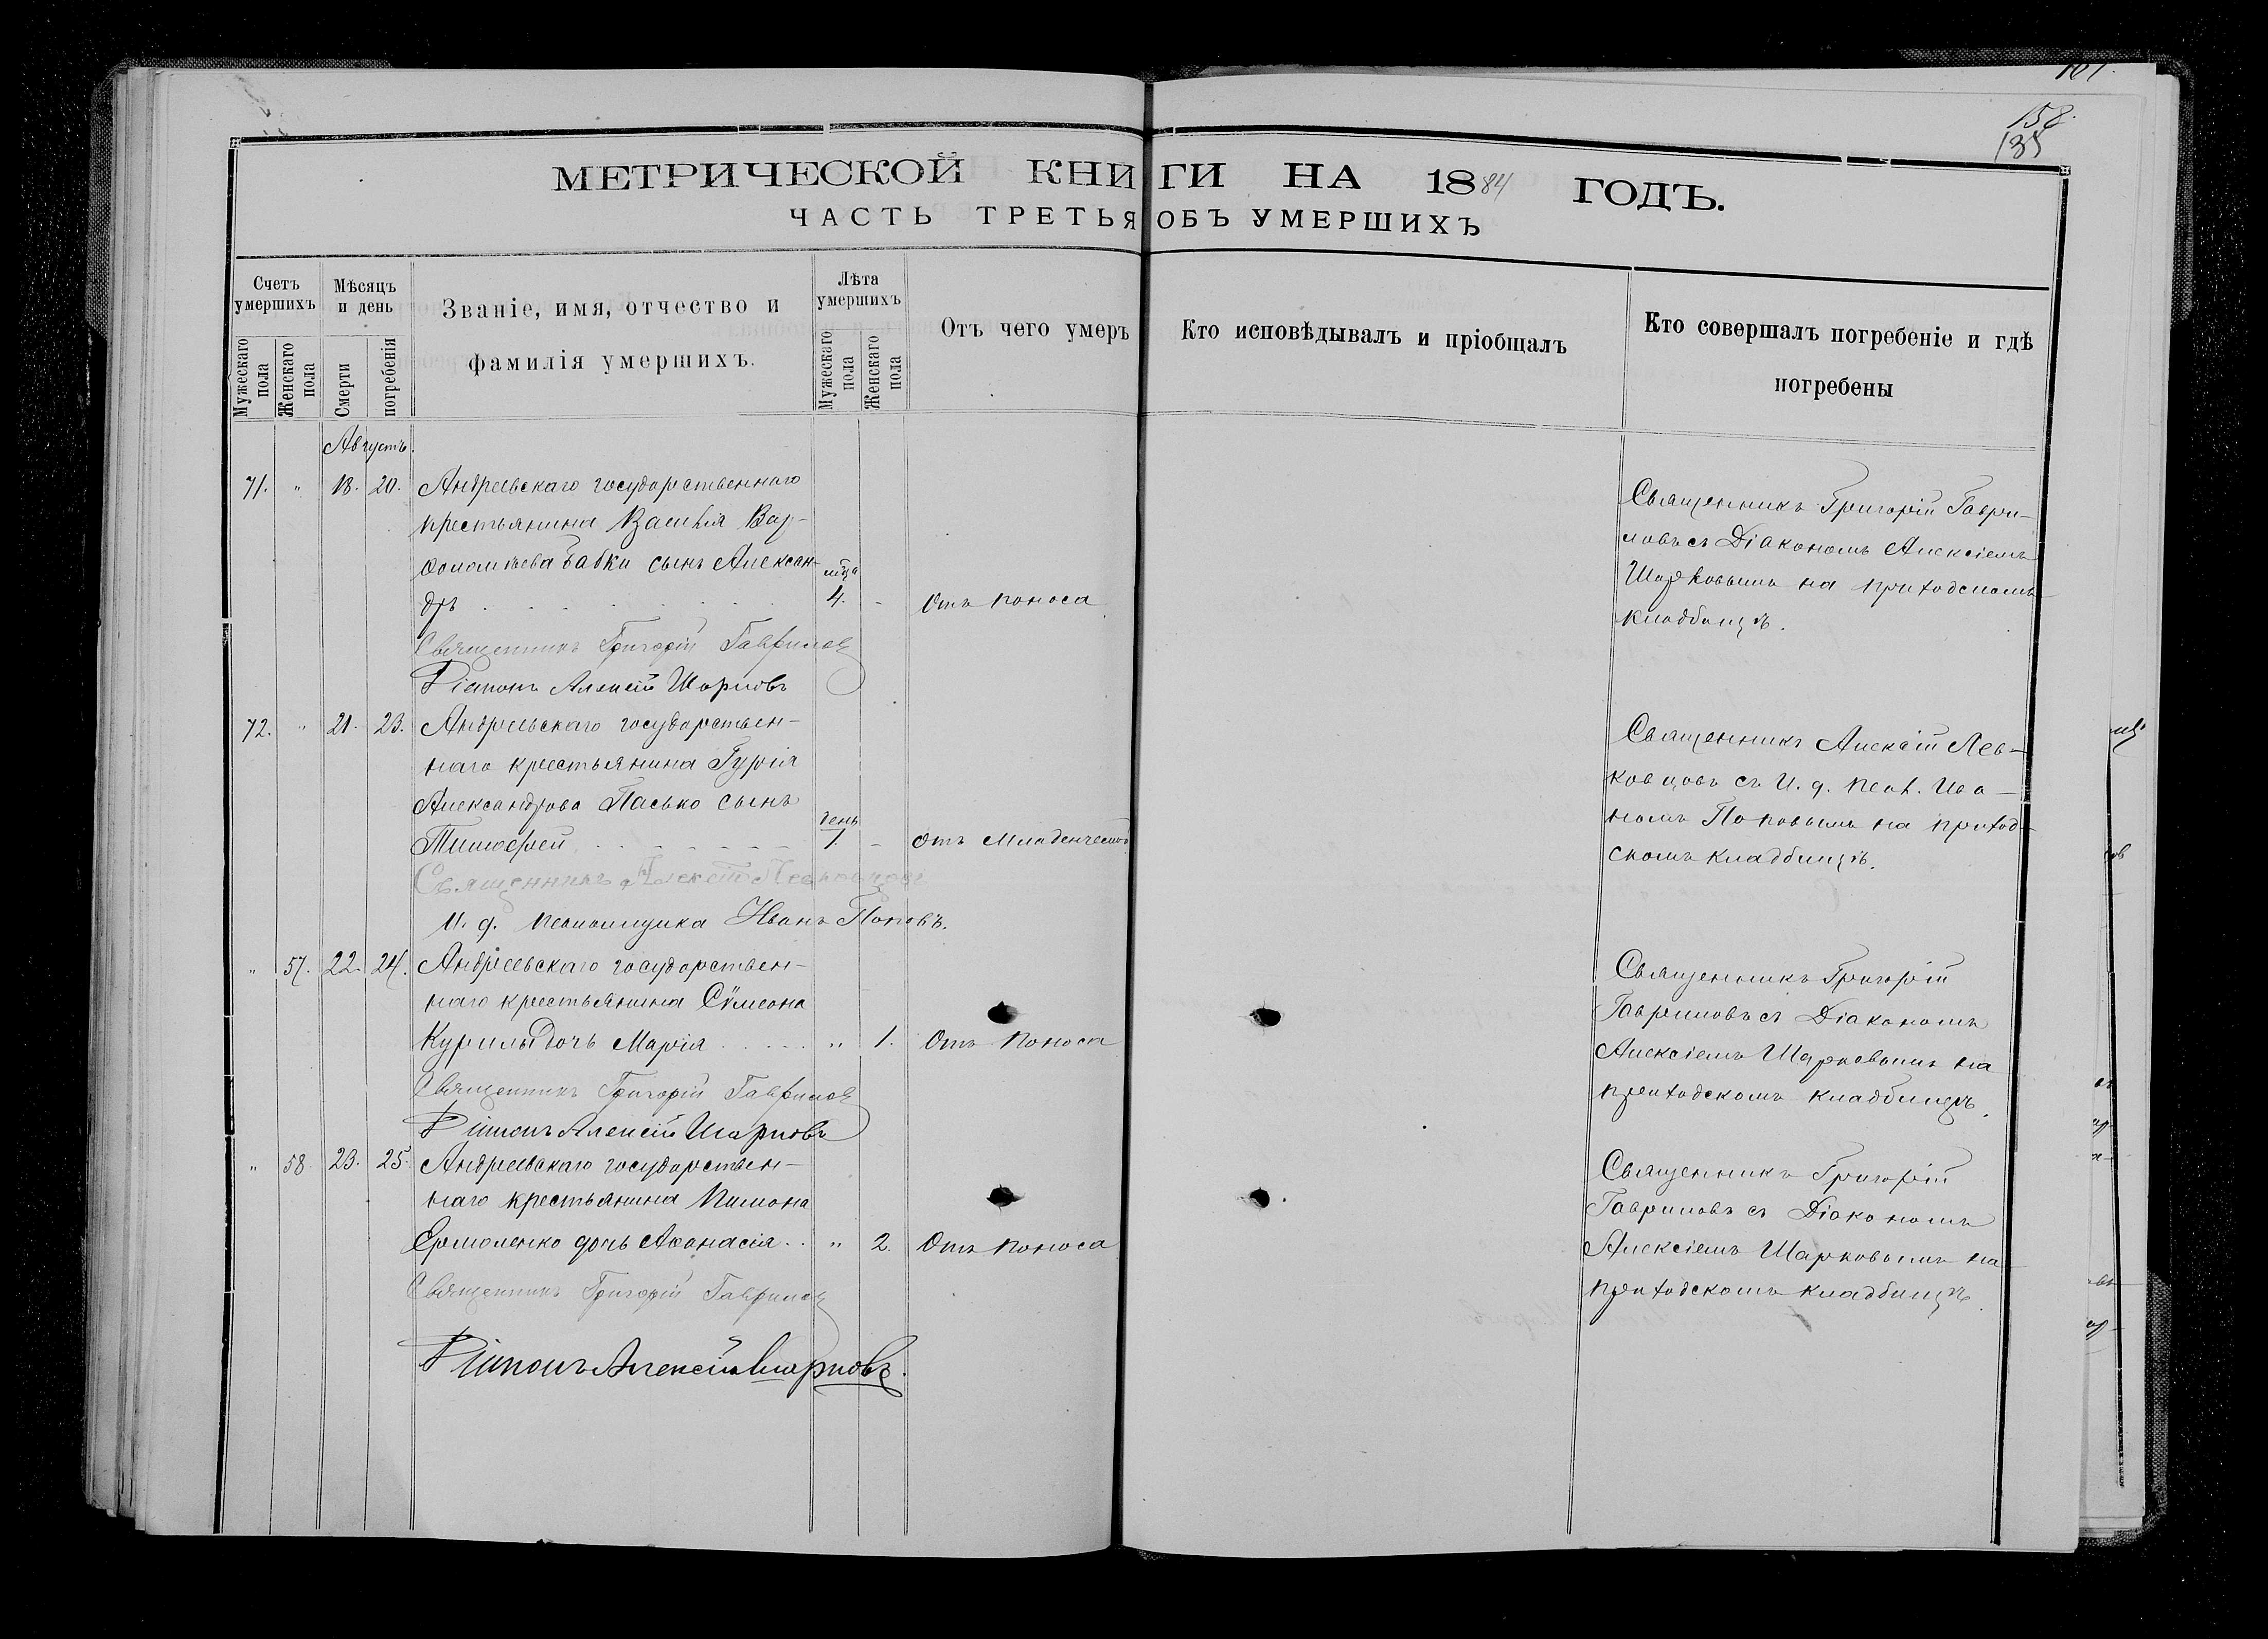 158.
135
МЕТРИЧЕСКОЙ КНИГИ НА 1884 ГОДЪ.
ЧАСТЬ ТРЕТЬЯ ОБЪ УМЕРШИХЪ
Счетъ умершихъ
Мужескаго пола
Женскаго пола
Мѣсяцъ и день
Смерти
погребенія
Званіе, имя, отчество и
фамилія умершихъ.
Лѣта умершихъ
Мужескаго пола
Женскаго пола
Отъ чего умеръ
Кто исповѣдывалъ и пріобщалъ
Кто совершалъ погребеніе и гдѣ
погребены
Августъ.
71. " 18. 20. Андреевскаго государственнаго
крестьянина Василія Вар-
ѳоломѣева Бабки сынъ Алексан-
мѣца
дръ 4. - Отъ поноса
Священникъ Григорій Гавриловъ
Діаконъ Алексій Шарковъ
Священникъ Григорій Гаври-
ловъ съ Діакономъ Алексіемъ
Шарковымъ на приходскомъ
кладбищѣ.
72. " 21. 23. Андреевскаго государствен-
наго крестьянина Гурія
Александрова Пасько сынъ
день
Тимоѳей 1. - Отъ Младенческой
Священникъ Алексій Левковцовъ
И. д. псаломщика Иванъ Поповъ.
Священникъ Алексій Лев-
ковцовъ съ И. д. псал. Ива-
номъ Поповымъ на приход-
скомъ кладбищѣ.
" 57. 22. 24. Андреевскаго государствен-
наго крестьянина Сѵмеона
Курилы дочь Марія " 1. Отъ поноса
Священникъ Григорій Гавриловъ
Діаконъ Алексій Шарковъ
Священникъ Григорій
Гавриловъ съ Діакономъ
Алексіемъ Шарковымъ на
приходскомъ кладбищѣ.
" 58. 23. 25. Андреевскаго государствен-
наго крестьянина Пимона
Ермоленко дочь Аѳанасія " 2. Отъ поноса
Священникъ Григорій Гавриловъ
Діаконъ Алексій Шарковъ.
Священникъ Григорій
Гавриловъ съ Діакономъ
Алексіемъ Шарковымъ на
приходскомъ кладбищѣ.